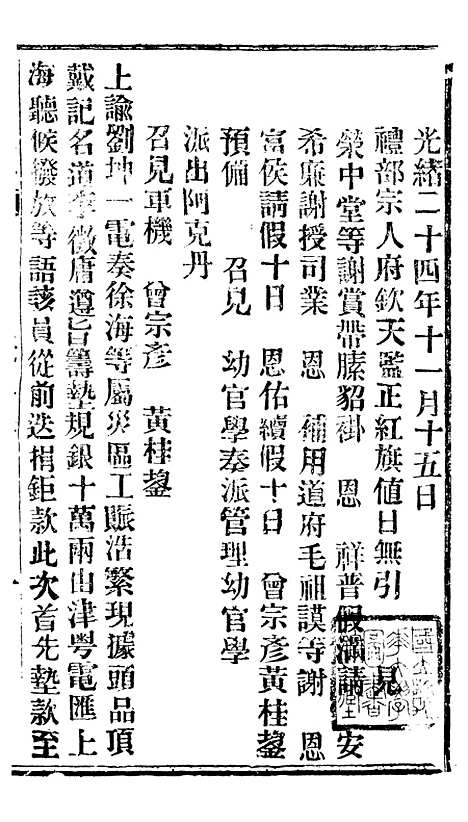 光緒二十四年十一月十五日
禮部宗人府欽天監正紅旗值日無引　見
榮中堂等謝賞帶膆貂褂　恩　祥普假滿請　安
希廉謝授司業　恩　補用道府毛祖謨等謝　恩
富侯請假十日　恩佑續假十日　曾宗彥黃桂鋆
預備　召見　幼官學奏派管理幼官學
派出阿克丹
召見軍機　曾宗彥　黃桂鋆
上諭劉坤一電奏徐海等屬災區工賑浩繁現據頭品頂
戴記名道李徵庸遵旨籌墊規銀十萬兩由津粵電匯上
海聽候撥放等語該員從前迭捐鉅款此次首先墊款至